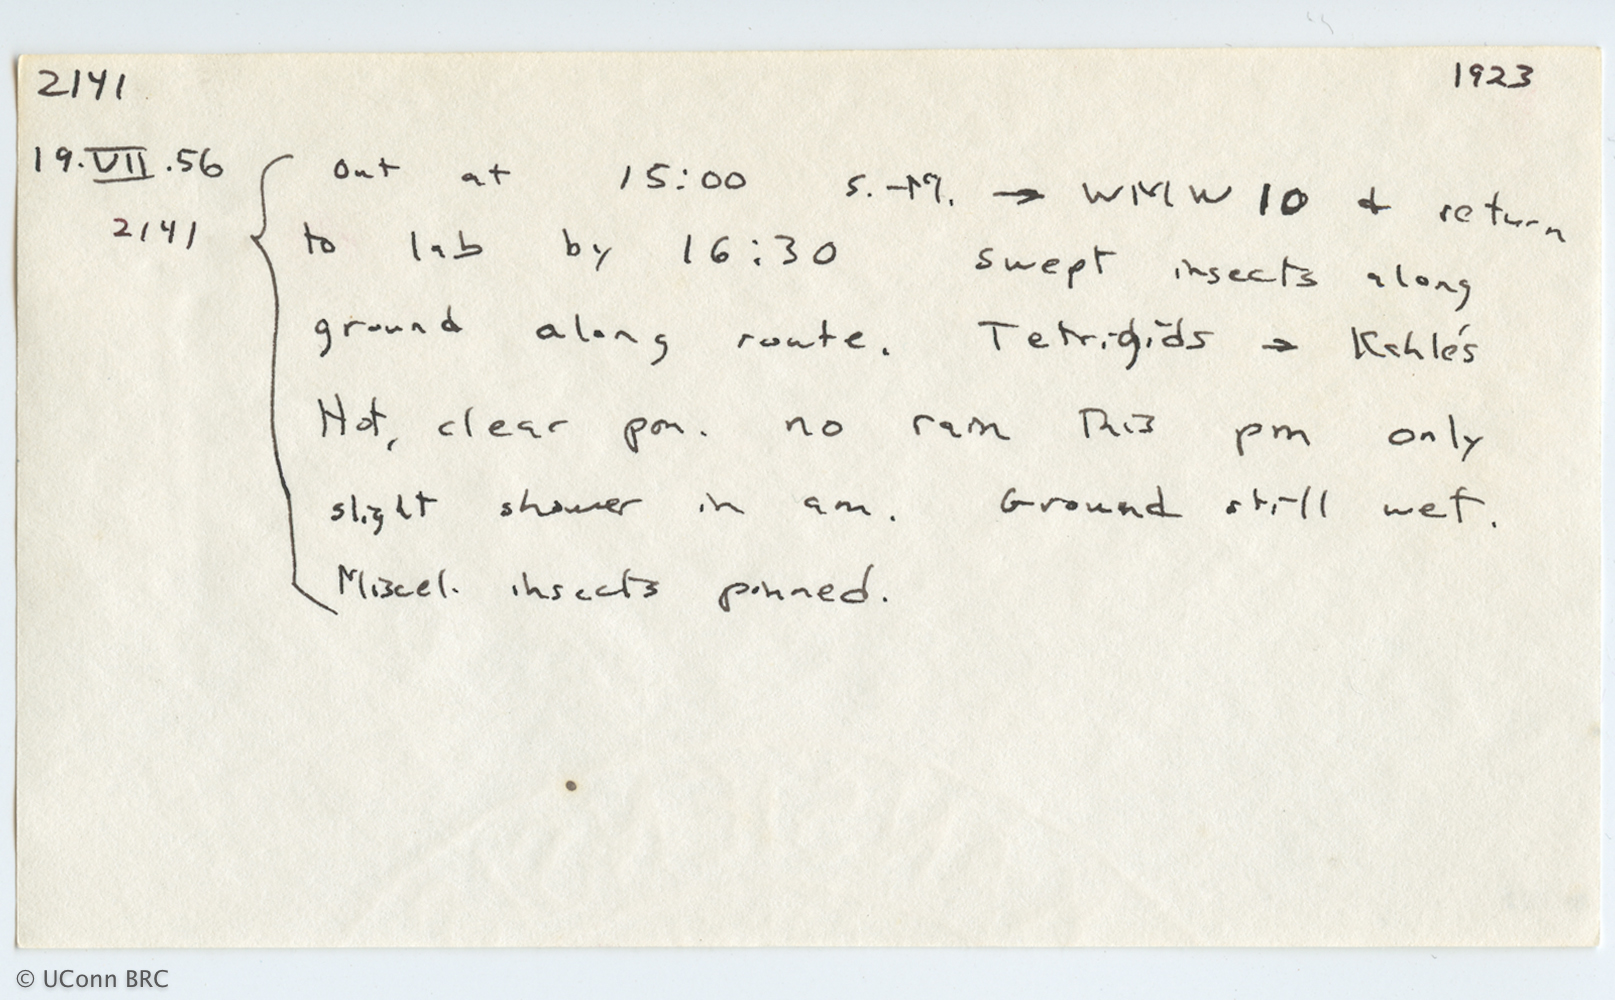 2141 1923
19.VII.56 out at 15:00 → WMW 10 & return
2141 to lab by 16:30 swept insects along
ground along route. Tetrigids → Kahle's
Hot, clear pm. no rain this pm only
slight shower in am. Ground still wet.
Miscel. insects pinned.
© UConn BRC